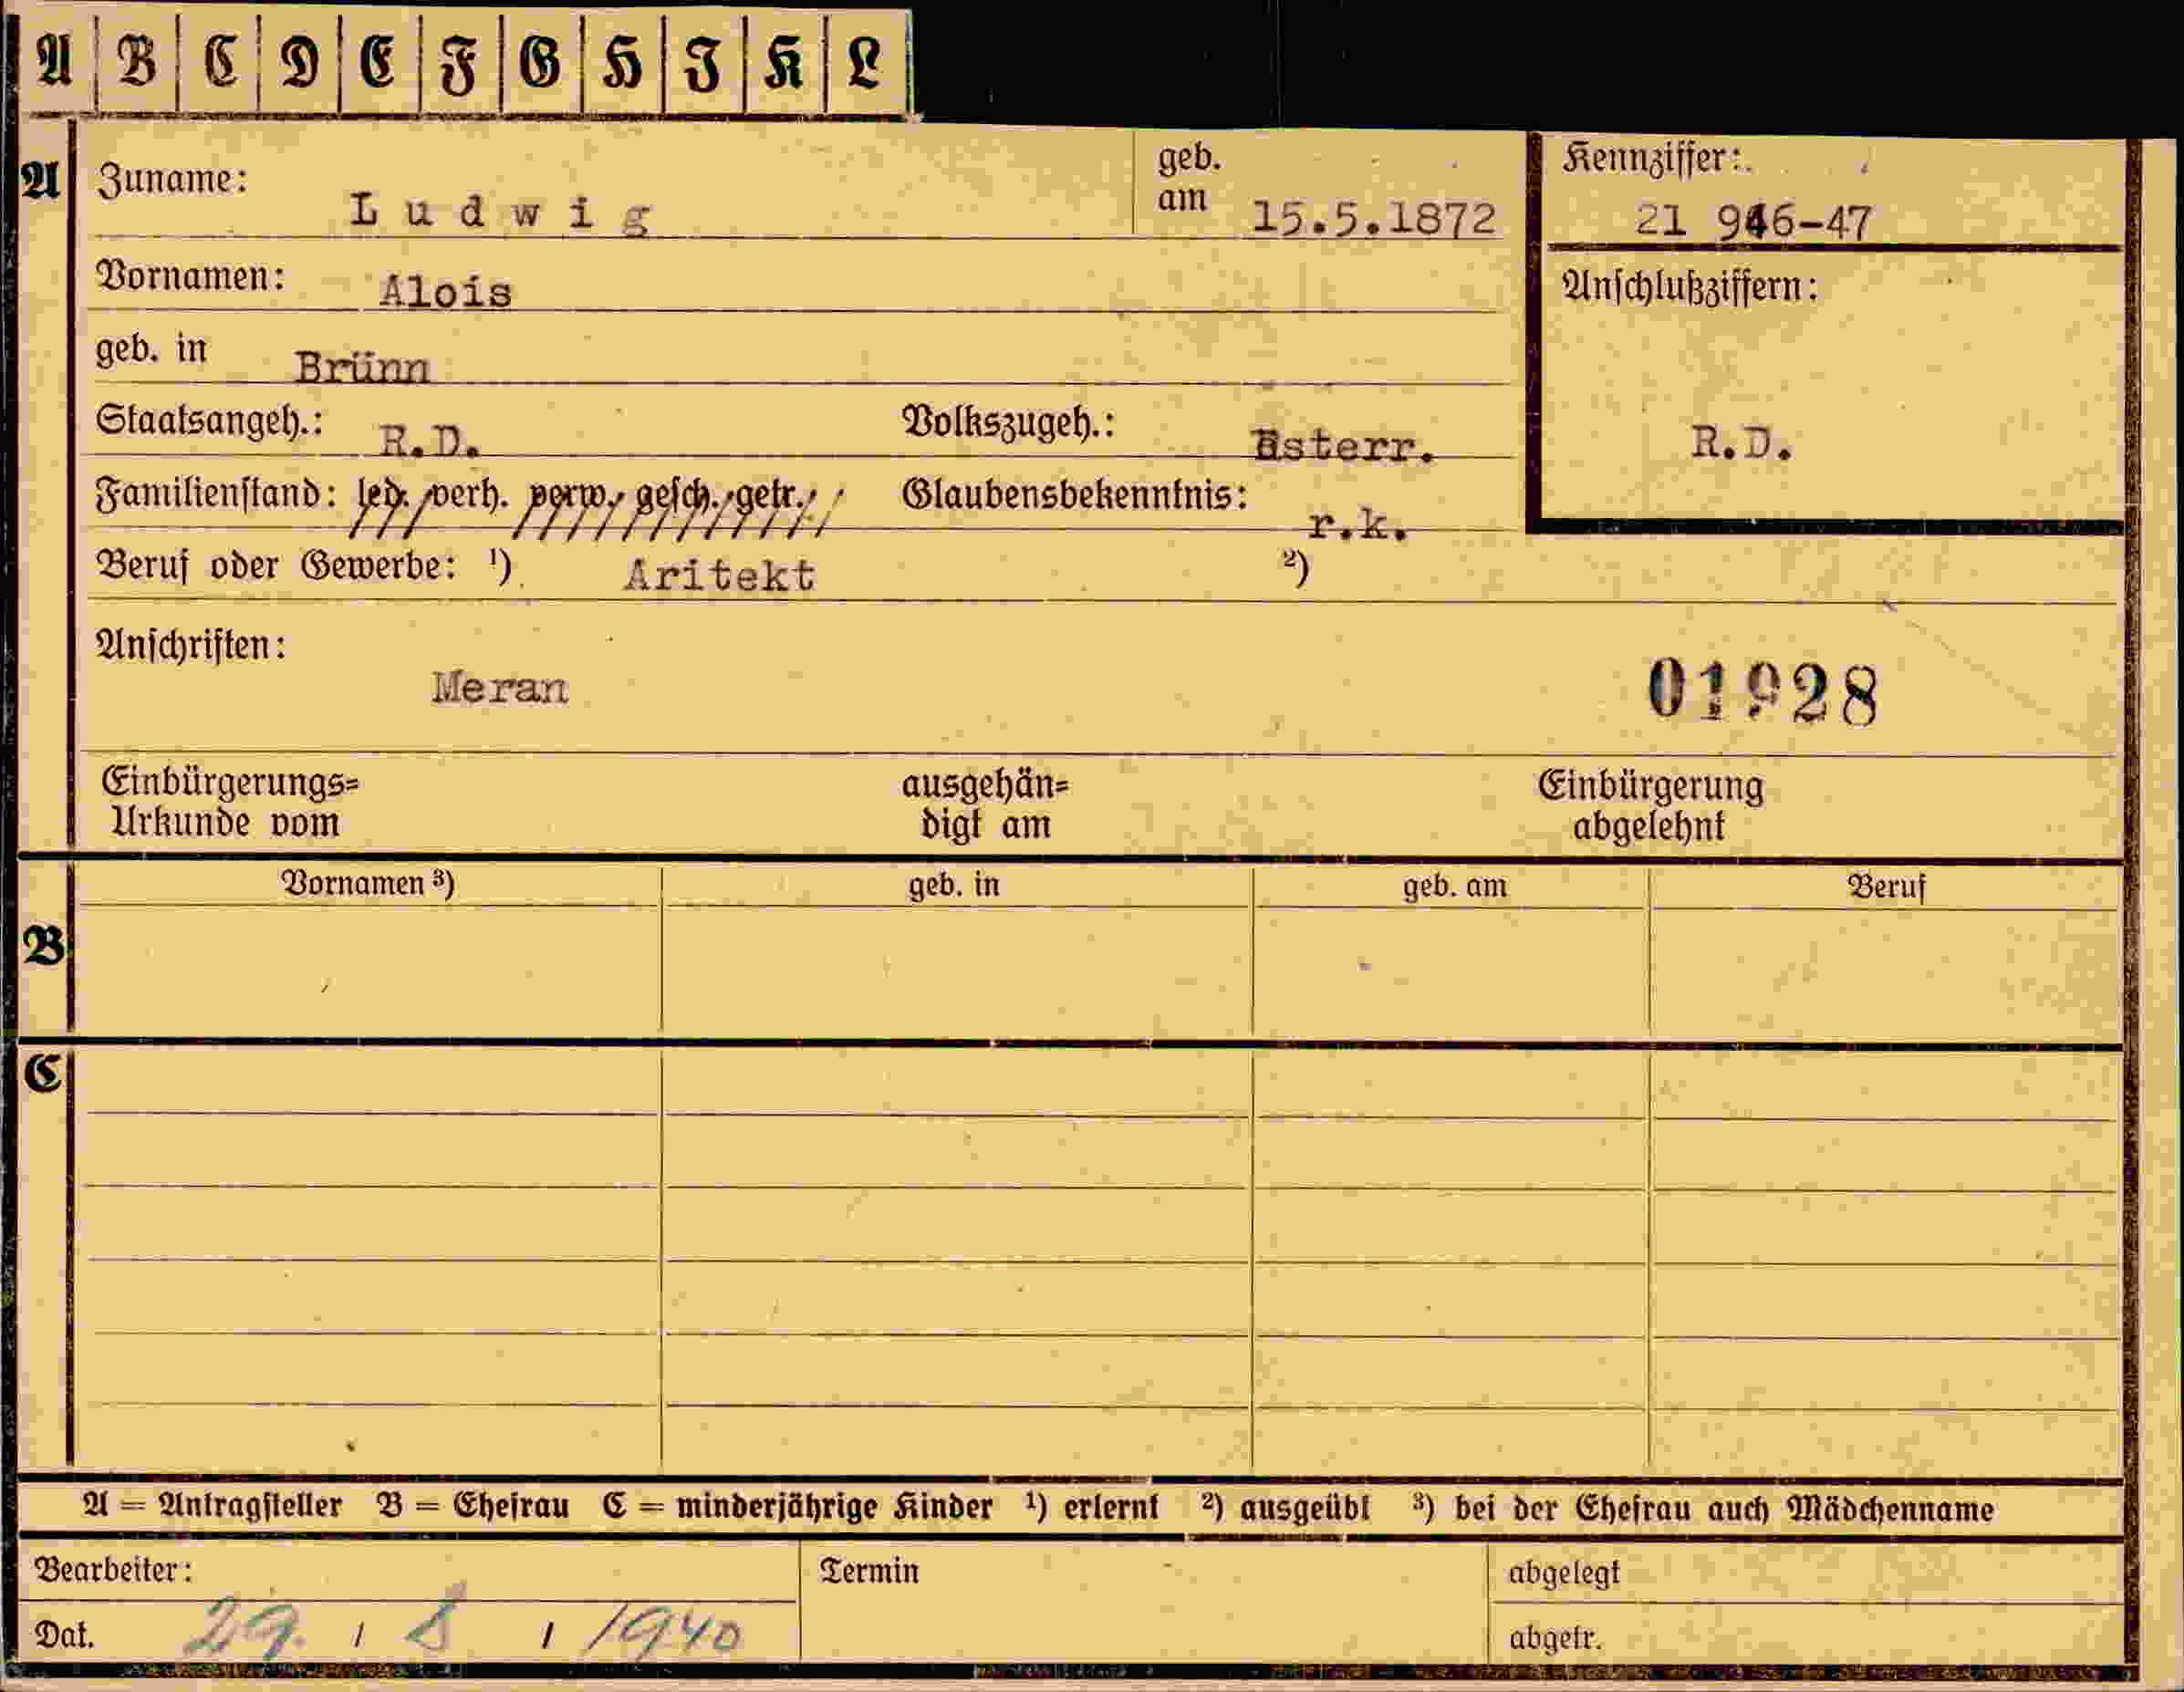 A B C D E F G H I K L
A Zuname: Ludwig geb. am 15.5.1872 Kennziffer: 21 946-47
Vornamen: Alois Anschlußziffern:
geb. in Brünn
Staatsangeh.: R.D. Volkszugeh.: Österr. R.D.
Familienstand: led. verh. verw. gesch. getr. Glaubensbekenntnis: r.k.
Beruf oder Gewerbe: ¹) Aritekt ²)
Anschriften: Meran 01928
Einbürgerungs= ausgehän= Einbürgerung
Urkunde vom digt am abgelehnt
Vornamen ³) geb. in geb. am Beruf
B
C
A = Antragsteller B = Ehefrau C = minderjährige Kinder ¹) erlernt ²) ausgeübt ³) bei der Ehefrau auch Mädchenname
Bearbeiter: Termin abgelegt
Dat. 29. / 8 / 1940 abgetr.